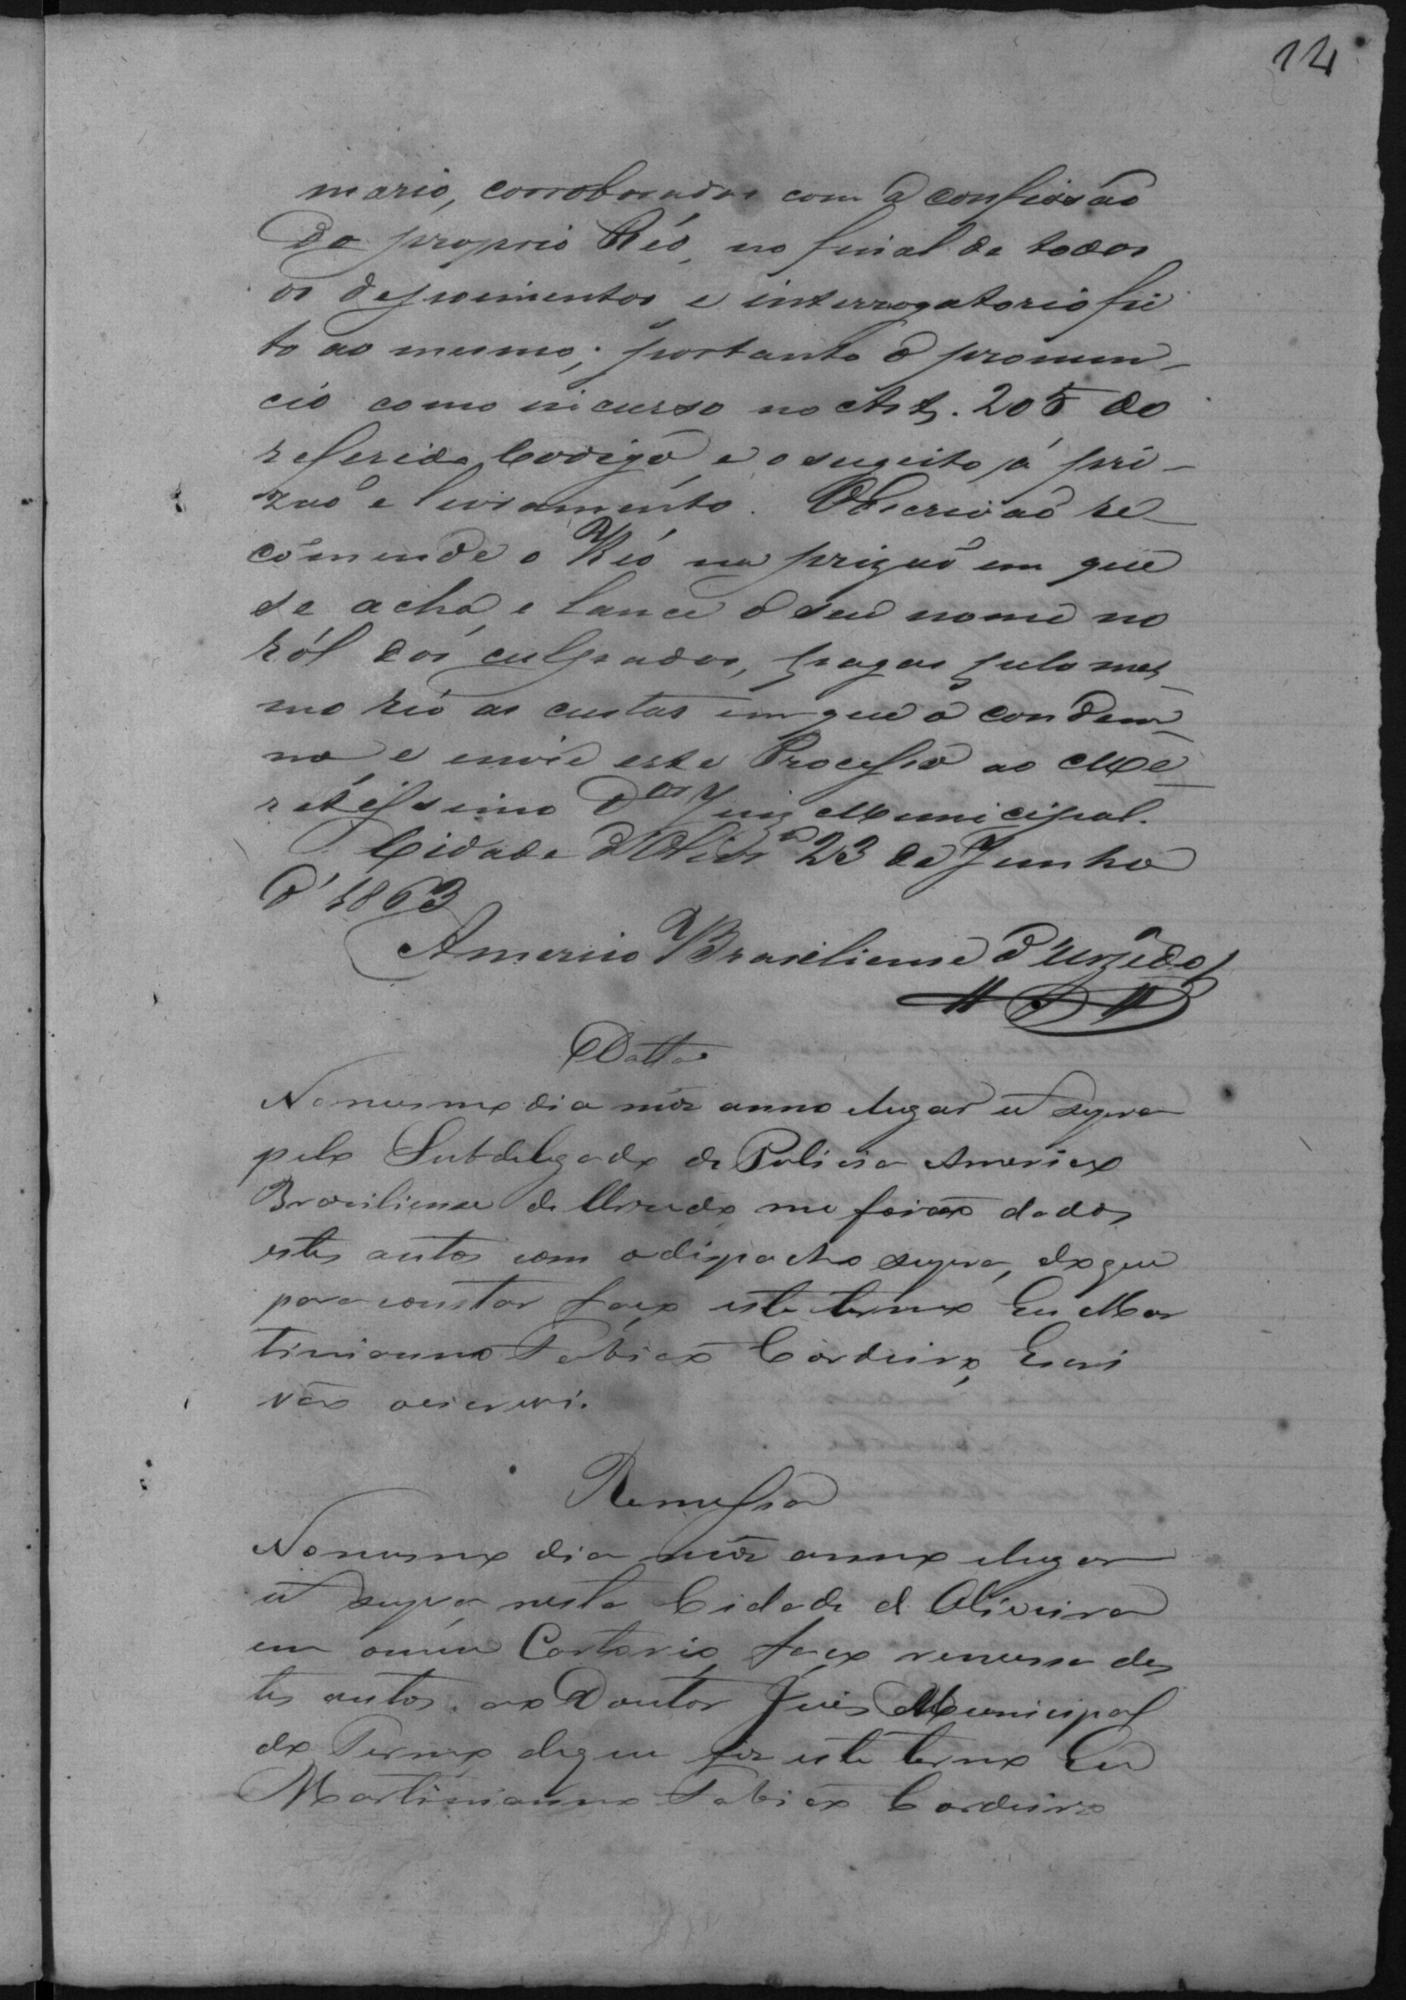 14
mario, corroborados com a confissão
do proprio Réo, no final de todos
os depoimentos e interrogatorio fei
to ao mesmo; portanto o pronun-
cio como incurso no Art. 205 do
referido Codigo e o sugeito á pri-
zaõ e livramento. O Escrivaõ re-
cõmende o Réo na prizaõ em que
se acha, e lance o seu nome no
ról dos culpados, pagas pelo mes-
mo réo as custas em que o condem-
no e envie este Processo ao Me-
retissimo Dor Juiz Municipal.
Cidade d'Olivra 23 de Junho
d'1863
Americo Brasiliense d'Urzêdo
Datta
No mesmo dia mez anno elugar ut supra
pelo Subdelegado de Policia Americo
Brasiliense de Urzedo me foraõ dados
estes autos com o dispacho supra, do que
para constar faço este termo Eu Mar
timianno Fabiaõ Cordeiro, Escri
vão oescrevi.
Remessa
No mesmo dia mez anno elugar
ut supra nesta Cidade d Oliveira
em omeu Cartorio, faço remessa des
tes autos. ao Doutor Juis Municipal
do Termo, doque fiz este termo Eu
Martimianno Fabiaõ Cordeiro